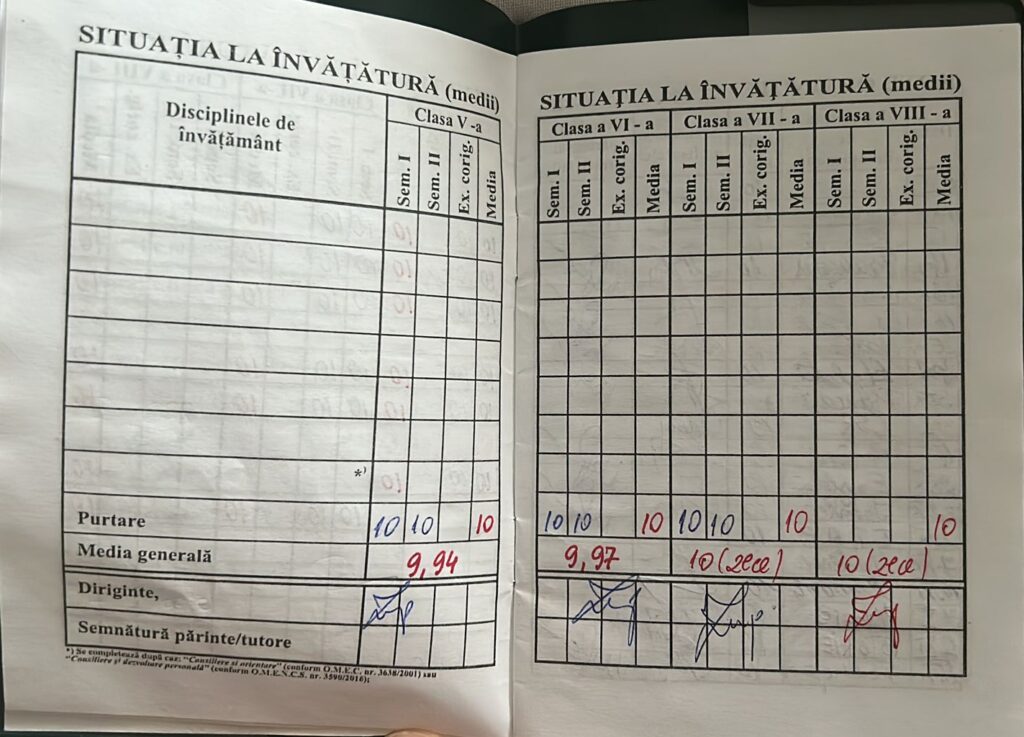 SITUAȚIA LA ÎNVĂȚĂTURĂ (medii)
Disciplinele de învățământ
Clasa V -a
Sem. I
Sem. II
Ex. corig.
Media
*)
Purtare 10 10 10
Media generală 9,94
Diriginte,
Semnătură părinte/tutore
*) Se completează după caz: "Consiliere si orientare" (conform O.M.E.C. nr. 3638/2001) sau
"Consiliere și dezvoltare personală" (conform O.M.E.N.C.S. nr. 3590/2016);
SITUAȚIA LA ÎNVĂȚĂTURĂ (medii)
Clasa a VI - a Clasa a VII - a Clasa a VIII - a
Sem. I Sem. II Ex. corig. Media Sem. I Sem. II Ex. corig. Media Sem. I Sem. II Ex. corig. Media
10 10 10 10 10 10 10
9,97 10 (zece) 10 (zece)